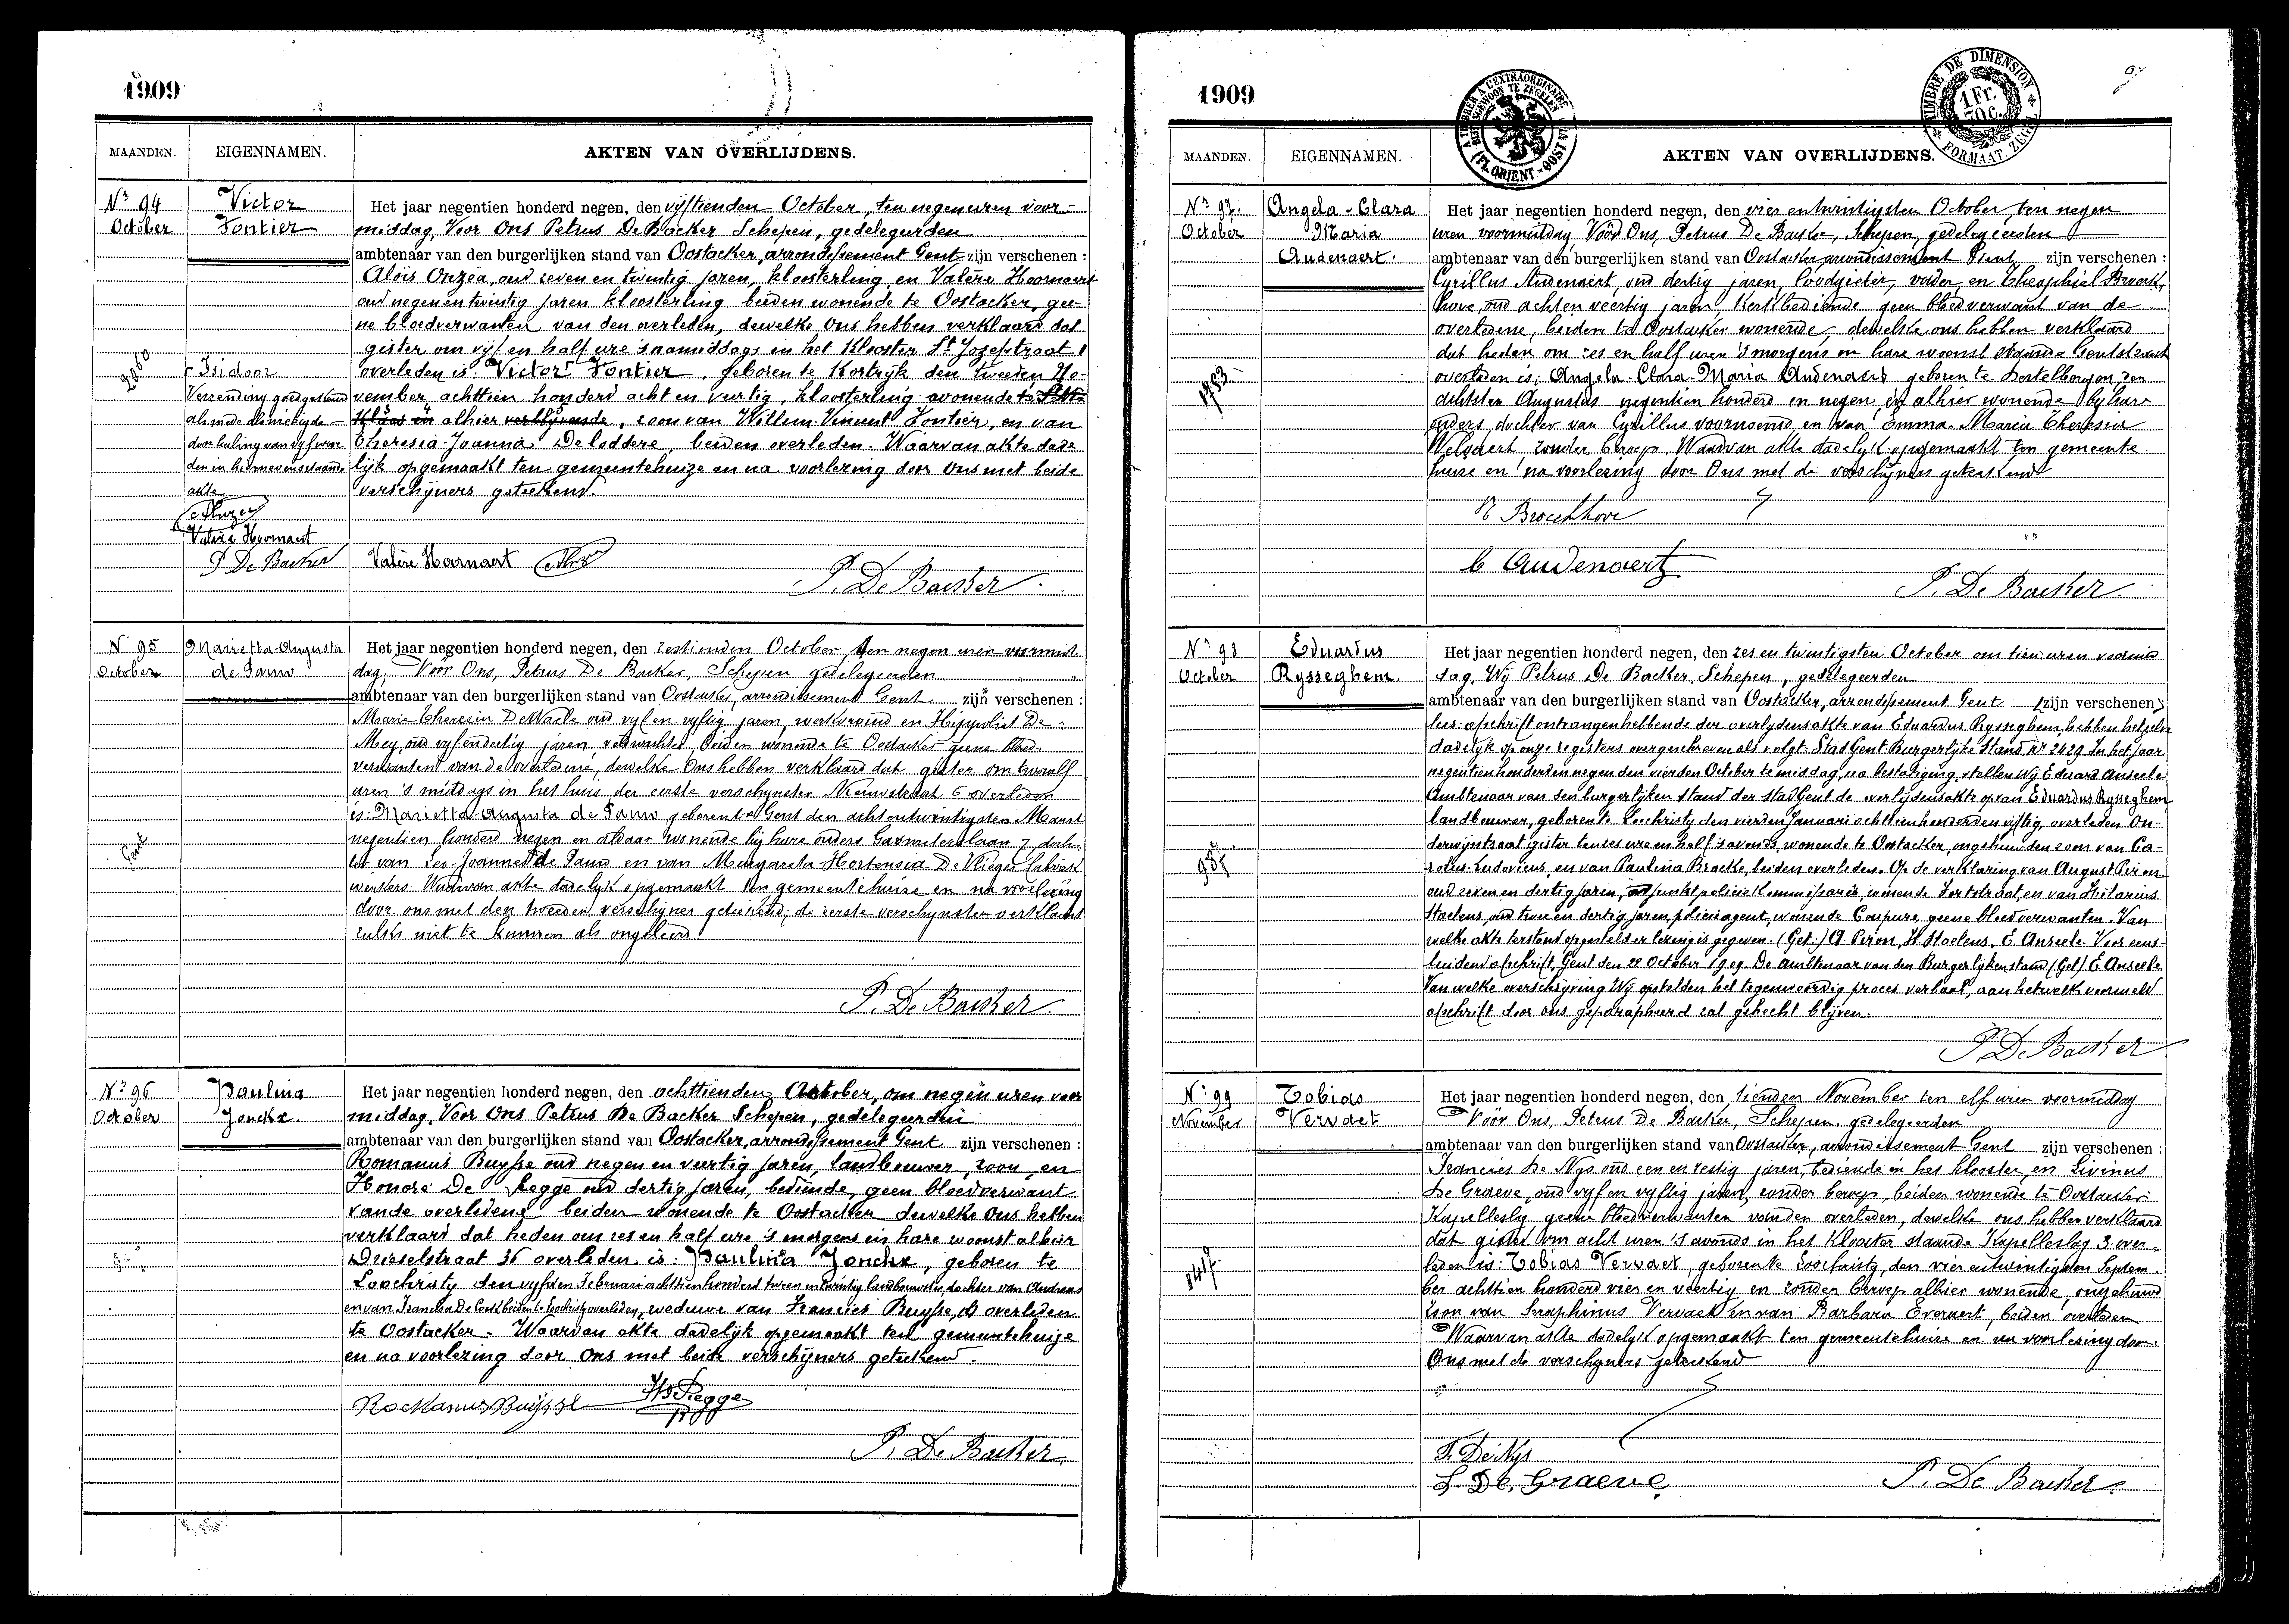 1909
MAANDEN. EIGENNAMEN. AKTEN VAN OVERLIJDENS.
Nr 94 October
Victor Fontier
Het jaar negentien honderd negen, den vijftienden October, ten negen uren voor-
middag, Voor Ons Petrus De Backer Schepen, gedelegeerden
ambtenaar van den burgerlijken stand van Oostacker, arrondissement Gent zijn verschenen :
Aloïs Onzea, oud zeven en twintig jaren, kloosterling en Valère Hoornaert
oud negen en twintig jaren kloosterling beiden wonende te Oostacker, gee-
ne bloedverwanten van den overleden, dewelke Ons hebben verklaard dat
gister om vijf en half ure 's namiddags in het Klooster St Jozefstraat 1
overleden is Victor Fontier, geboren te Kortrijk den tweeden No-
vember achttien honderd acht en veertig, kloosterling wonende te
alhier, zoon van Willem Vincent Fontier, en van
Theresia Joanna De loddere, beiden overleden. Waarvan akte dade-
lijk opgemaakt ten gemeentehuize en na voorlezing door Ons met beide
verschijners geteekend.
Isidoor
Verzending goedgekeurd
alsmede de nietige
door haling van vijf woor
den in hiernevenstaande
akte
Valère Hoornaert
P De Backer
Valère Hoornaert
P. De Backer
N 95 October
Marietta-Augusta de Pauw
Het jaar negentien honderd negen, den zestienden October ten negen uren voormid-
dag, Vóór Ons, Petrus De Backer, Schepen gedelegeerden
ambtenaar van den burgerlijken stand van Oostacker, arrondissement Gent zijn verschenen :
Marie Theresia De Waele oud vijf en vijftig jaren, werkvrouw en Hippoliet De
Mey, oud vijf en dertig jaren, veldwachter beiden wonende te Oostacker geene bloed-
verwanten van de overledene, dewelke Ons hebben verklaard dat gister om twaalf
uren 's middags in het huis der eerste verschynster Nieuwstraat 6 overleden
is: Marietta-Augusta de Pauw geboren te Gent den acht en twintigsten Maart
negentien honderd negen en aldaar wonende bij hare ouders Gasmeterslaan 7, doch-
ter van Leo-Joannes de Pauw en van Margareta Hortensia De Vlieger fabriek
werksters Waarvan akte dadelyk opgemaakt ten gemeentehuize en na voorlezing
door ons met den tweeden verschijner geteekend; de eerste verschynster verklaart
zulks niet te kunnen als ongeleerd
Gent
P. De Backer
Nr 96 October
Paulina Jonckx
Het jaar negentien honderd negen, den achttienden October, om negen uren voor
middag, Voor Ons Petrus De Backer Schepen, gedelegeerden
ambtenaar van den burgerlijken stand van Oostacker, arrondissement Gent zijn verschenen :
Romanus Buysse oud negen en veertig jaren, landbouwer, zoon, en
Honoré De Regge oud dertig jaren, bediende, geen bloedverwant
van de overledene beiden wonende te Oostacker dewelke Ons hebben
verklaard dat heden om zes en half ure 's morgens in hare woonst alhier
Drieselstraat 36 overleden is: Paulina Jonckx, geboren te
Loochristy den vyfden Februari achttien honderd twee en twintig landbouwster, dochter van Andreas
en van Francisca De Cock beiden te Loochristy overleden, weduwe van Francies Buysse, overleden
te Oostacker. Waarvan akte dadelijk opgemaakt ten gemeentehuize
en na voorlezing door Ons met beide verschijners geteekend.
Romanus Buysse H De Regge
P. De Backer
1909
TIMBRE DE DIMENSION 1 Fr. 70 C. FORMAAT ZEGEL
MAANDEN. EIGENNAMEN. AKTEN VAN OVERLIJDENS.
Nr 97. October
Angela-Clara Maria Audenaert.
Het jaar negentien honderd negen, den vier en twintigsten October ten negen
uren voormiddag, Vóór Ons, Petrus De Backer, Schepen, gedelegeerden
ambtenaar van den burgerlijken stand van Oostacker arrondissement Gent zijn verschenen :
Cyrillus Audenaert, oud dertig jaren, loodgieter, vader, en Theophiel Broeck-
hove, oud acht en veertig jaren, kerkbediende geen bloedverwant van de
overledene, beiden te Oostacker wonende, dewelke ons hebben verklaard
dat heden om zes en half uren 's morgens in hare woonst staande Gentstraat
overleden is: Angela-Clara-Maria Audenaert geboren te Destelbergen den
achtsten Augustus negentien honderd en negen, en alhier wonende by hare
ouders, dochter van Cyrillus voornoemd, en van Emma-Maria Theresia
Welvaert, zonder beroep. Waarvan akte dadelyk opgemaakt ten gemeente
huize en na voorlezing door Ons met de verschijners geteekend
Broeckhove
C Audenaert
P. De Backer.
Nr 98 October
Eduardus Rysseghem.
Het jaar negentien honderd negen, den zes en twintigsten October om tien uren voormid
dag, Wij Petrus De Backer, Schepen, gedelegeerden
ambtenaar van den burgerlijken stand van Oostacker, arrondissement Gent zijn verschenen
afschrift ontvangen hebbende der overlydensakte van Eduardus Rysseghem, hebben hetzelve
dadelyk op onze registers overgeschreven als volgt: Stad Gent Burgerlijke Stand, nr 2429. In het jaar
negentien honderd en negen den vierden October te middag, na bestatiging, stellen Wij Eduard Anseele
Ambtenaar van den burgerlijken stand der stad Gent de overlijdensakte op van Eduardus Rysseghem
landbouwer, geboren te Loochristy den vierden Januari achttien honderd en vijftig, overleden On-
derwijsstraat gister ten zes ure en half 's avonds, wonende te Oostacker, ongehuwden zoon van Ca-
rolus-Ludovicus, en van Paulina Bracke, beiden overleden. Op de verklaring van August Piron
oud zeven en dertig jaren, adjunkt policie kommissaris, wonende Fortstraat, en van Hilarius
Staelens, oud twee en dertig jaren, policieagent, wonende Coupure, geene bloedverwanten. Van
welke akte terstond opgesteld er lezing is gegeven. (Get.) A. Piron, H. Staelens, E. Anseele. Voor eens-
luidend afschrift, Gent den 22 October 1909. De Ambtenaar van den Burgerlijken stand (Get.) E. Anseele.
Van welke overschrijving Wij opstelden het tegenwoordig proces verbaal, aan hetwelk vermeld
afschrift door ons geparapheerd zal gehecht blijven.
P. De Backer
Nr 99 November
Tobias Vervaet
Het jaar negentien honderd negen, den tienden November ten elf uren voormiddag
Vóór Ons, Petrus De Backer, Schepen, gedelegeerden
ambtenaar van den burgerlijken stand van Oostacker, arrondissement Gent zijn verschenen :
Francies De Nys oud een en zestig jaren, bediende in het klooster, en Livinus
De Graeve, oud vyf en vyftig jaren, zonder beroep, beiden wonende te Oostacker
Kapellesleg geene bloedverwanten van den overleden, dewelke ons hebben verklaard
dat gister om acht uren 's avonds in het Klooster staande Kapellesleg 3 over-
leden is: Tobias Vervaet, geboren te Loochristy, den vier en twintigsten Septem-
ber achttien honderd vier en veertig en zonder beroep alhier wonende, ongehuwd
zoon van Seraphinus Vervaet en van Barbara Everaert, beiden overleden
Waarvan akte dadelyk opgemaakt ten gemeentehuize en na voorlezing door
Ons met de verschyners geteekend
F. De Nys
L. De Graeve
P. De Backer.